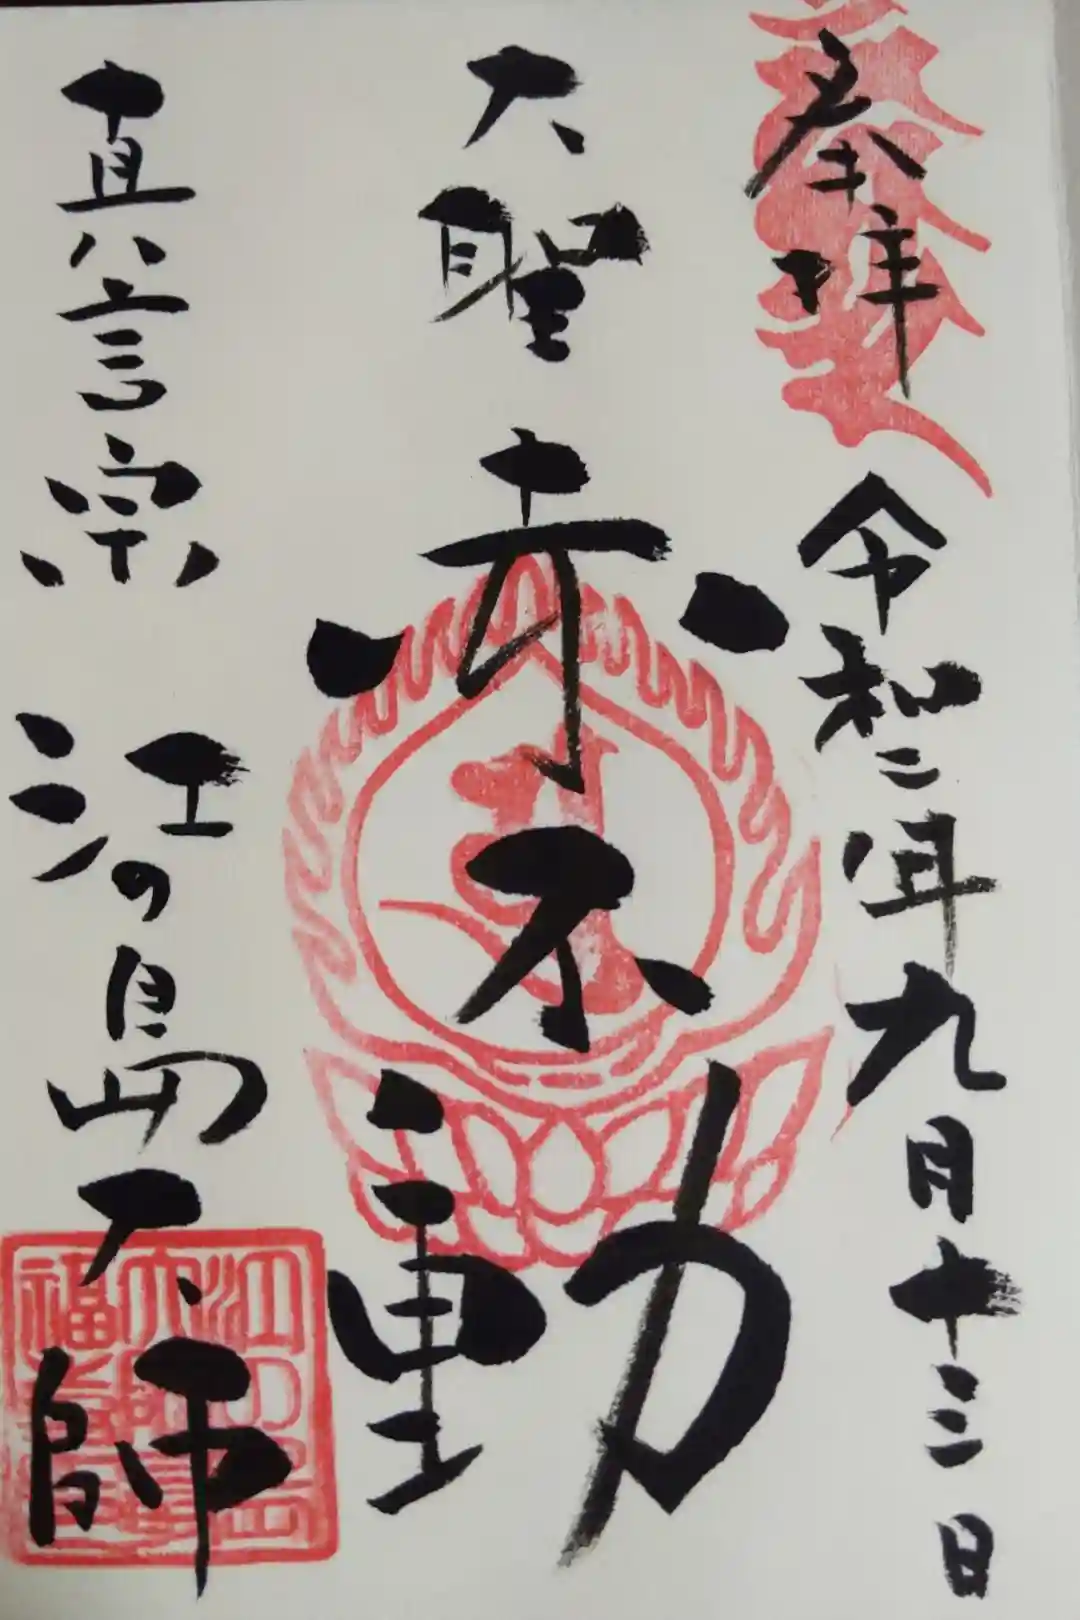 奉拝 令和二年九月十三日
大聖赤不動
真言宗 江の島大師